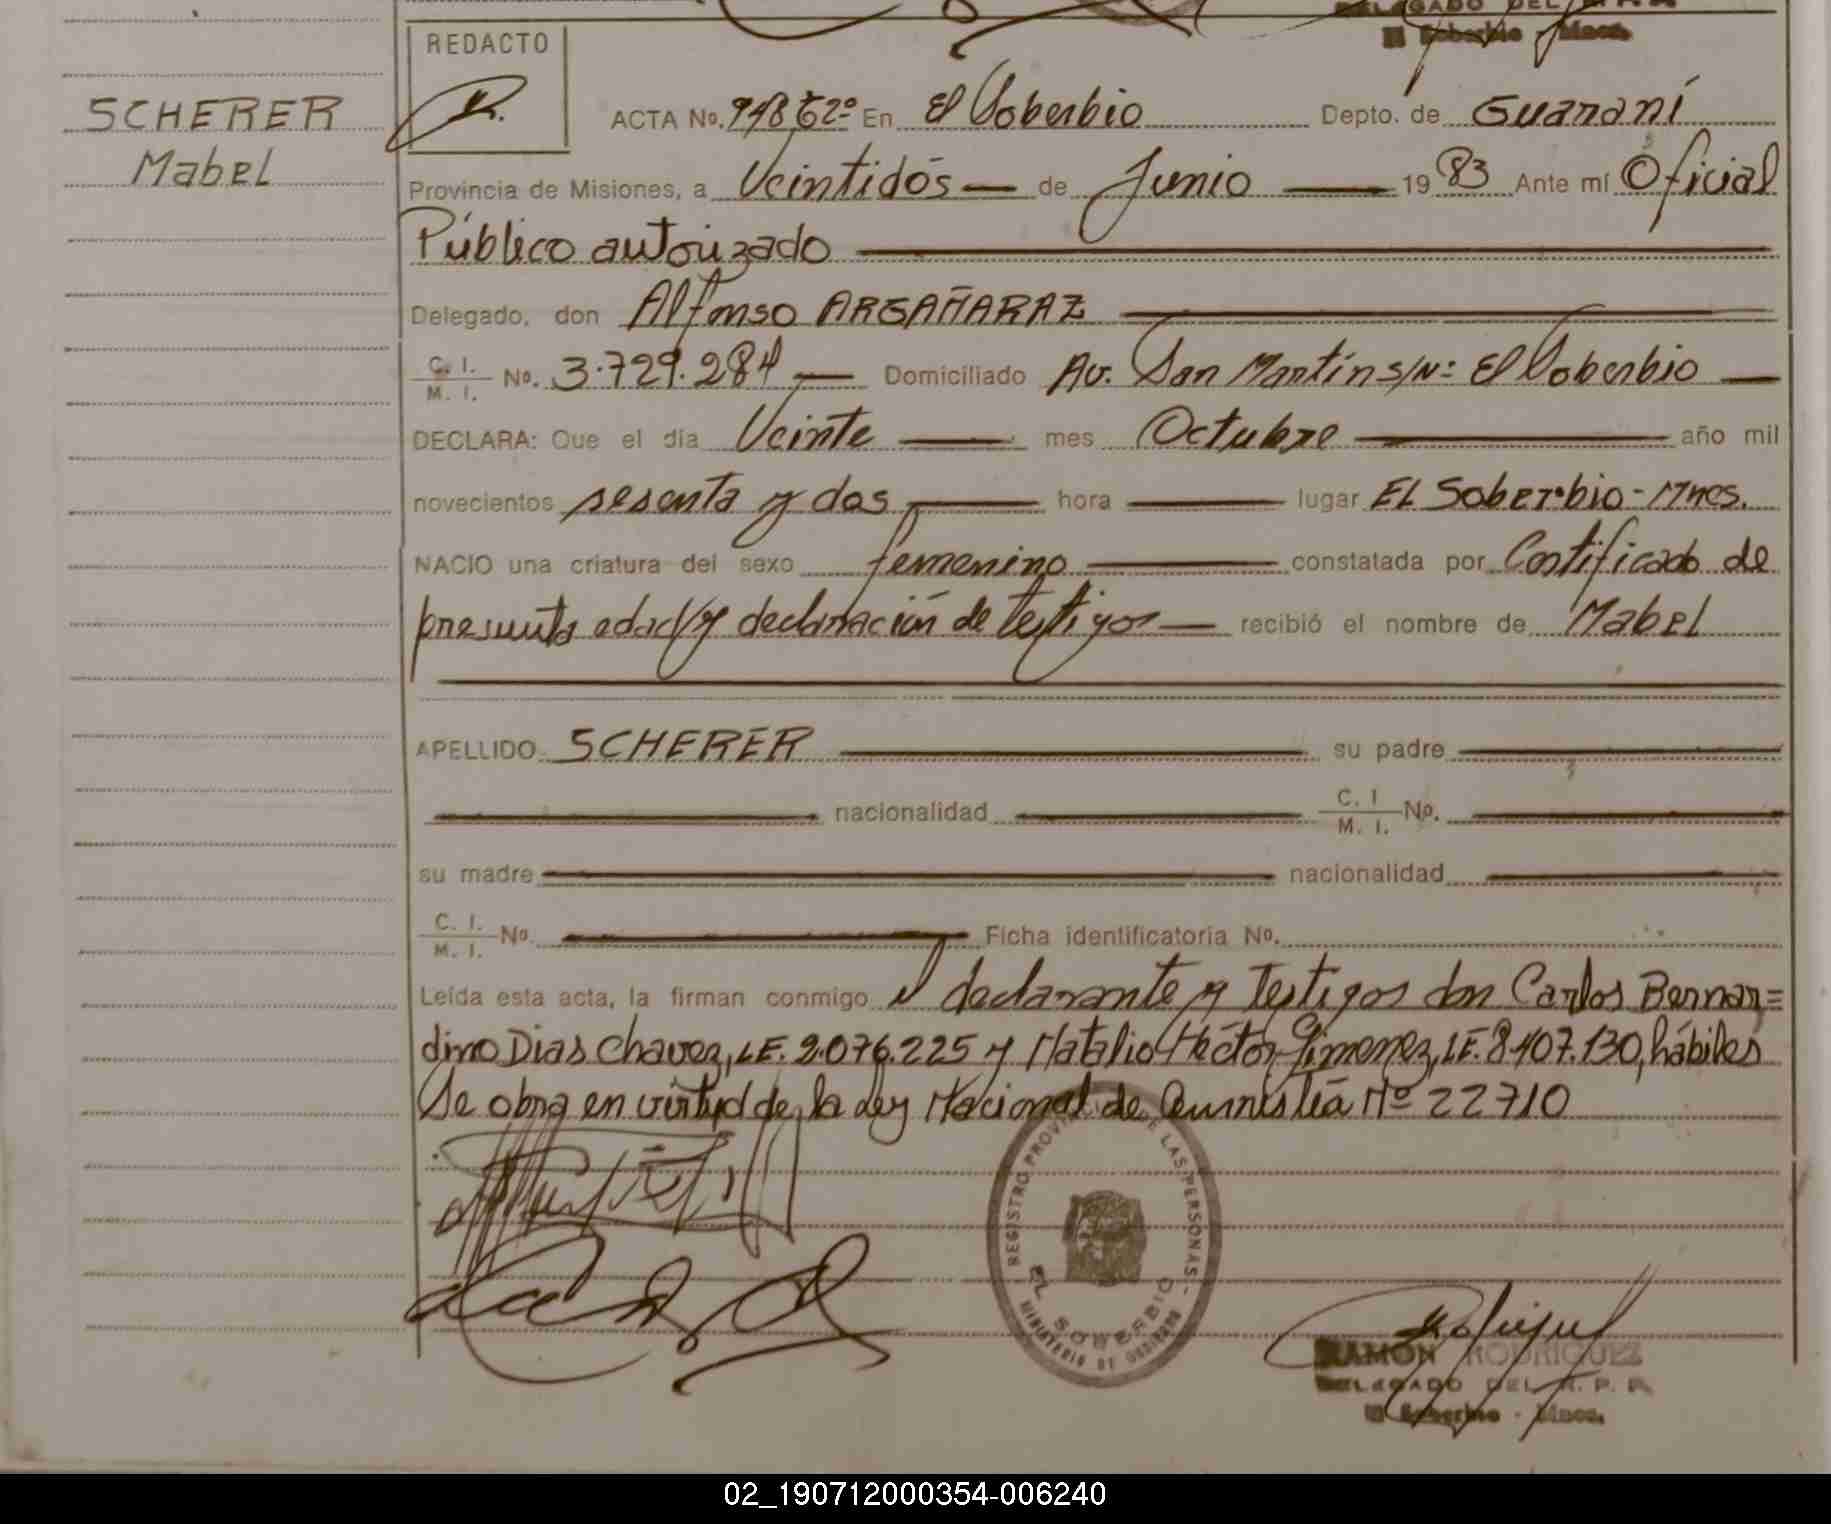 DELEGADO DEL R. P. P.
El Soberbio - Mnes.
REDACTO
SCHERER
Mabel
ACTA No. 998 Tº 2º En El Soberbio Depto. de Guaraní
Provincia de Misiones, a Veintidós — de Junio — 19 83 Ante mí Oficial
Público autorizado
Delegado, don Alfonso ARGAÑARAZ
C. I.
M. I. No. 3.729.284 — Domiciliado Av. San Martín s/Nº El Soberbio —
DECLARA: Que el día Veinte — mes Octubre — año mil
novecientos sesenta y dos — hora — lugar EL Soberbio - Mnes.
NACIO una criatura del sexo femenino — constatada por Certificado de
presunta edad y declaración de testigos — recibió el nombre de Mabel
APELLIDO SCHERER — su padre —
— nacionalidad — C. I. M. I. No. —
su madre — nacionalidad —
C. I. M. I. No. — Ficha identificatoria No.
Leída esta acta, la firman conmigo el declarante y testigos don Carlos Bernar=
dino Dias Chavez, LE. 2.076.225 y Natalio Héctor Gimenez, LE. 8.407.130, hábiles
Se obra en virtud de la Ley Nacional de Amnistía Nº 22710
REGISTRO PROVINCIAL DE LAS PERSONAS
EL SOBERBIO
MINISTERIO DE GOBIERNO
RAMON RODRIGUEZ
DELEGADO DEL R. P. P.
El Soberbio - Mnes.
02_190712000354-006240